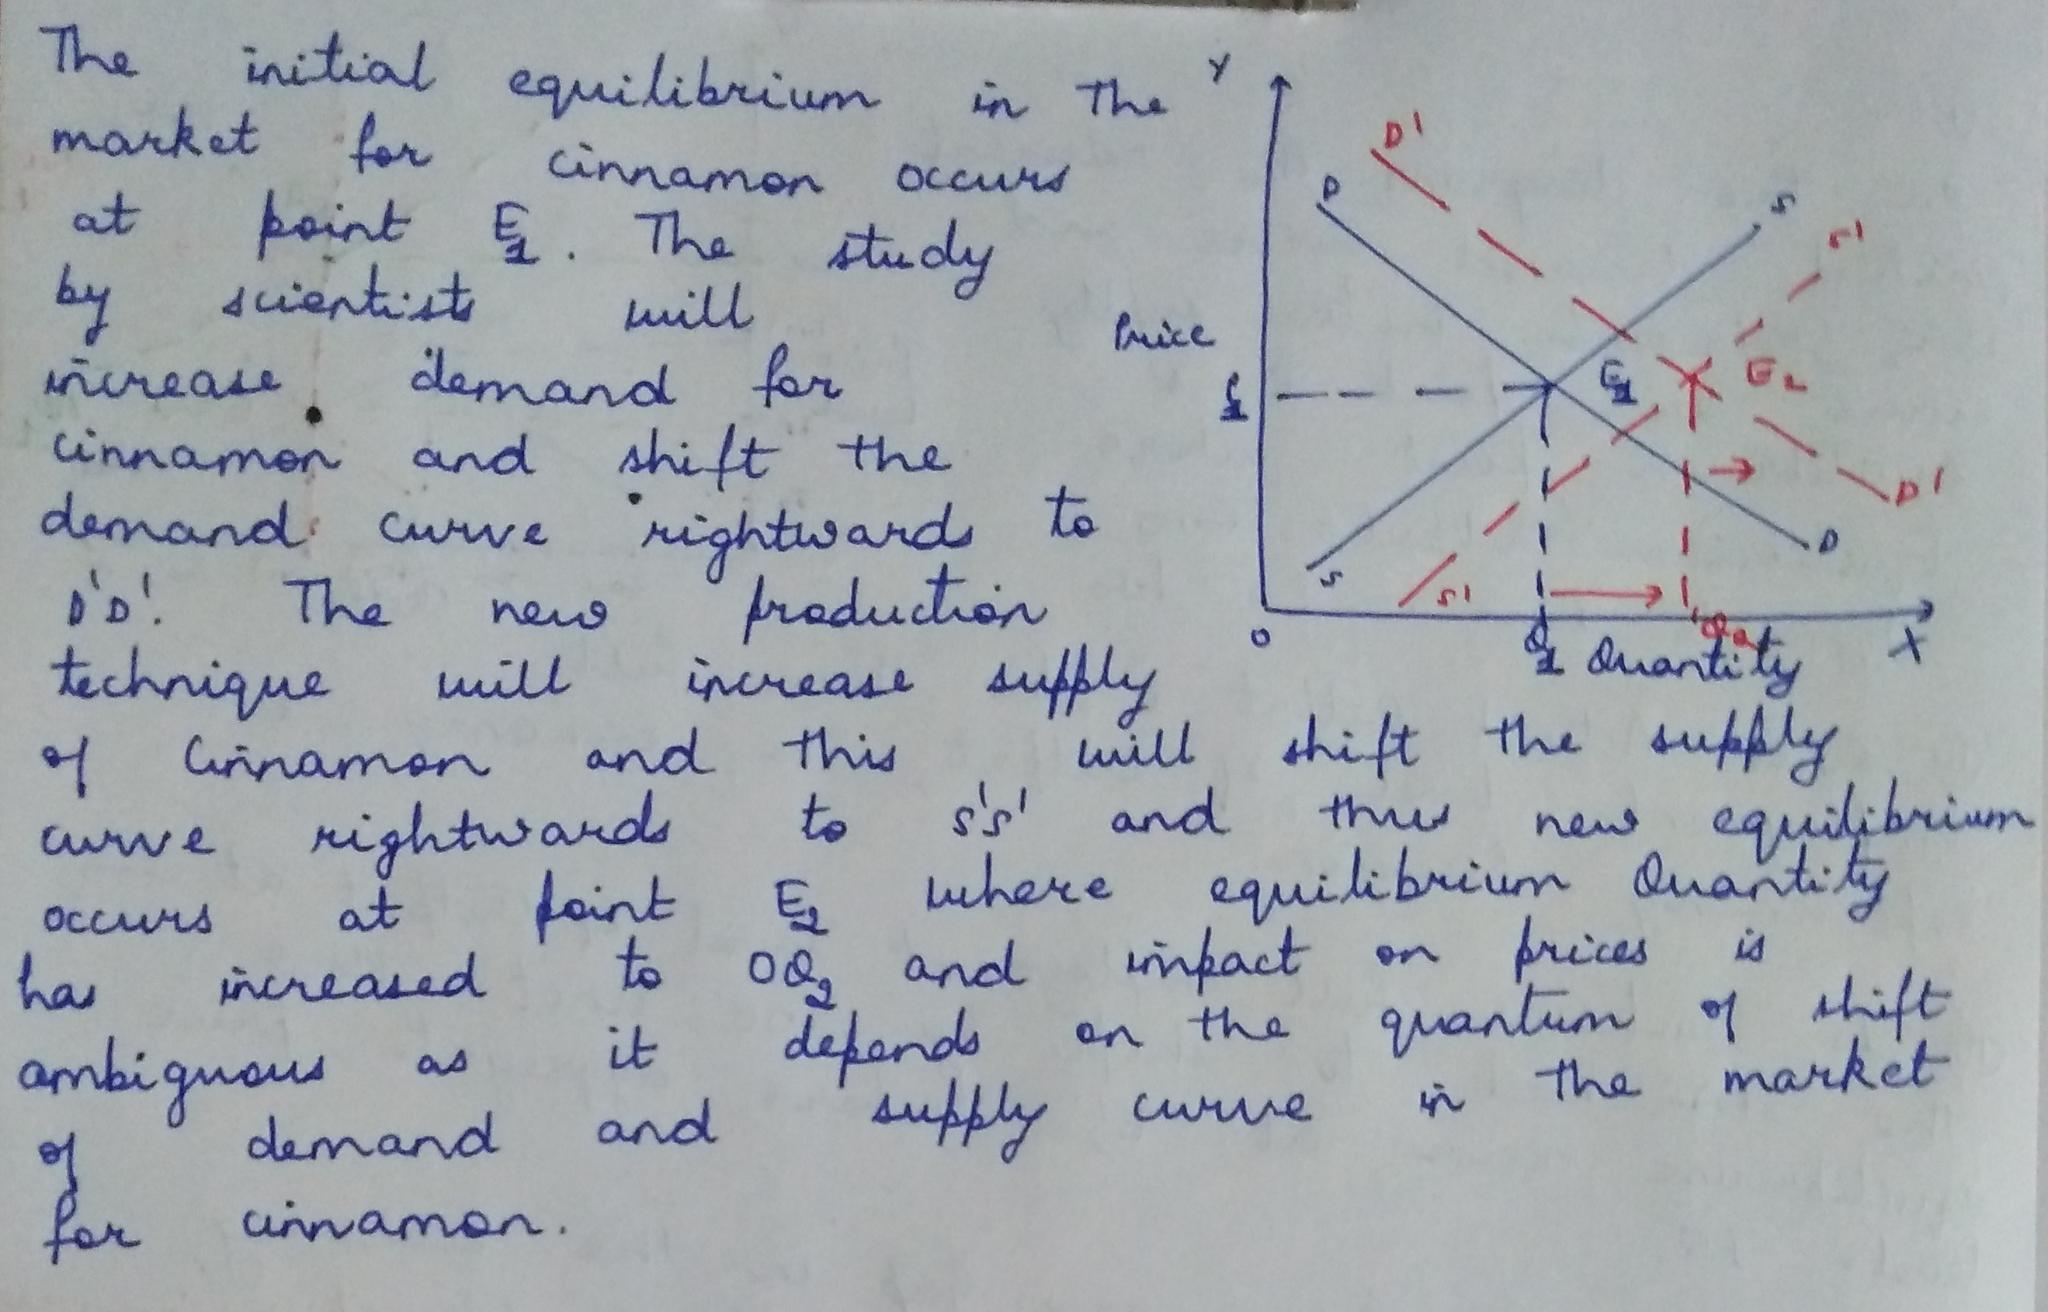 The initial equilibrium in the
market for cinnamon occurs
at point E1. The study
by scientists will
increase demand for
cinnamon and shift the
demand curve rightwards to
D'D'. The new production
technique will increase supply
of Cinnamon and this will shift the supply
curve rightwards to S'S' and thus new equilibrium
occurs at point E2 where equilibrium Quantity
has increased to OQ2 and impact on prices is
ambiguous as it depends on the quantum of shift
of demand and supply curve in the market
for cinnamon.
Y
D'
D
S
S'
Price
E1
E2
D'
D
S
S'
O
Q1
Q2
Quantity
X